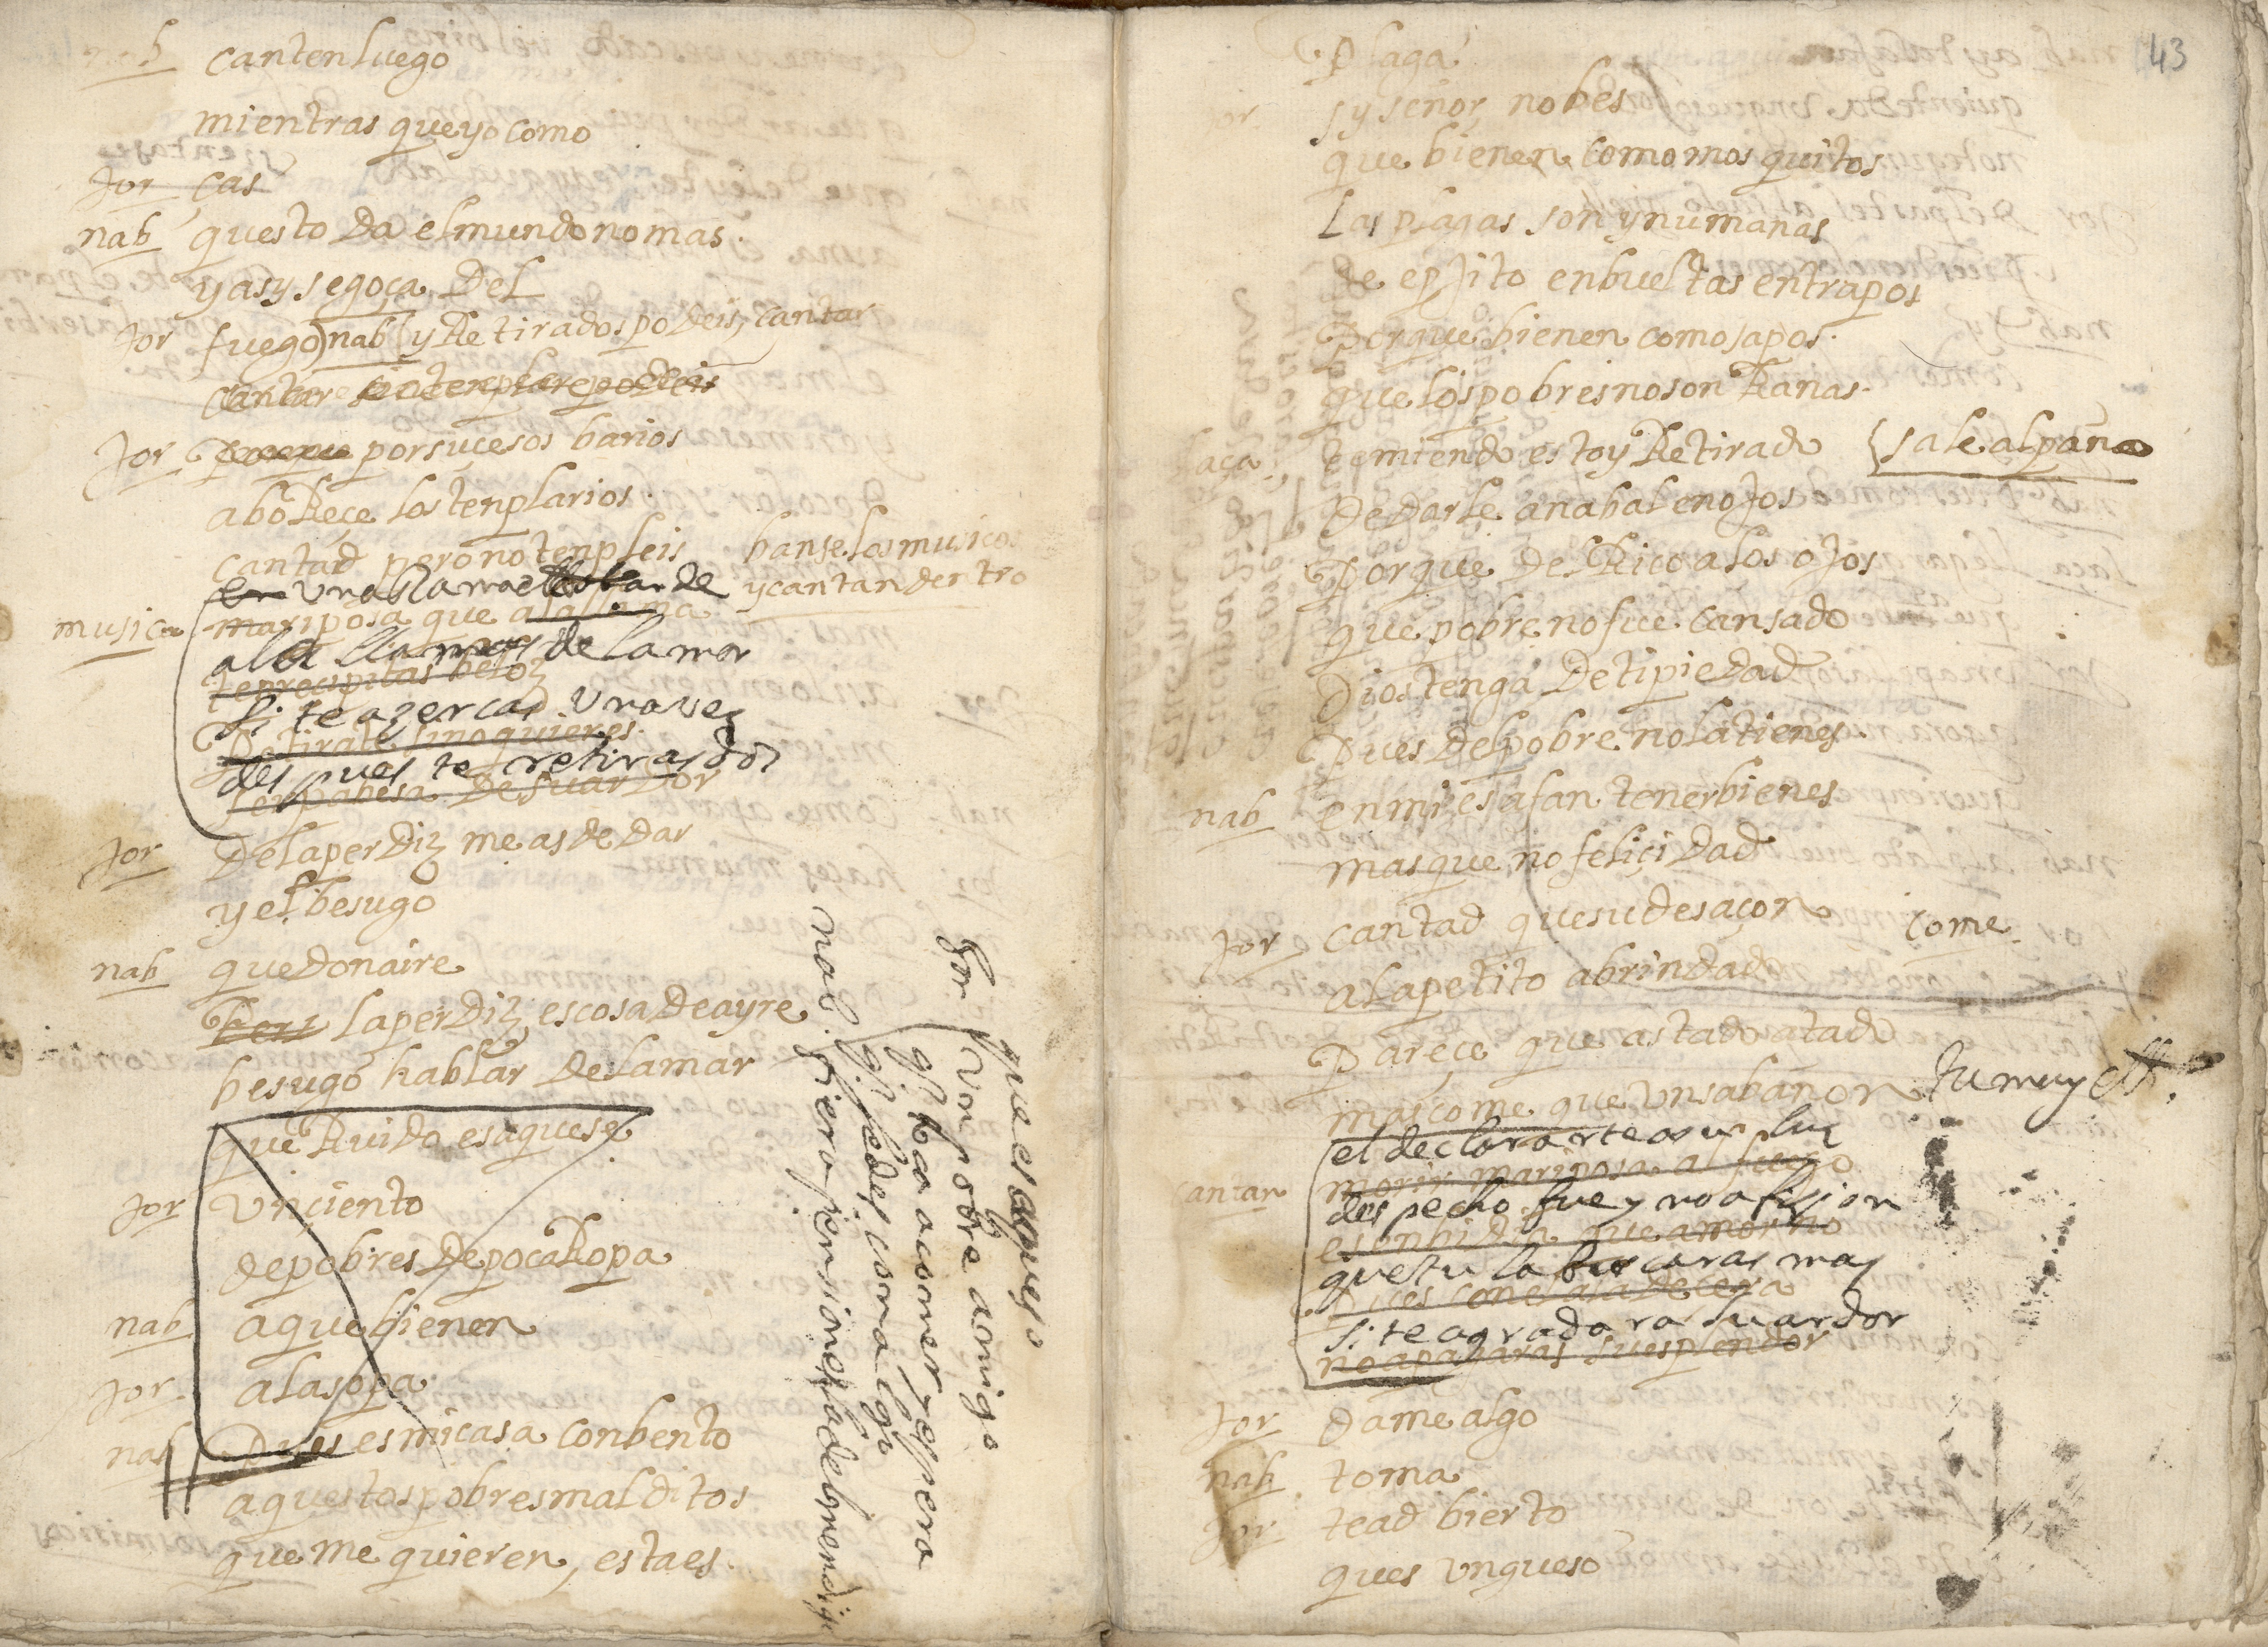 nab canten luego
mientras que yo como
sientase
Jor cas
nab questo da el mundo no mas.
y asy se goça del
Jor fuego nab y Retirados podeis, cantar
cantar podeis
Jor por sucesos barios
aboReçe los tenplarios.
cantad pero no tenpleis banse los musicos
y cantan dentro
una llama
musica mariposa que a la llama
a la llama de l amor
te precipitas beloz
si te azercas una vez
Retirate si no quieres
despues te retiras dos
ser pabesa de su ardor
Jor De la perdiz me as de dar
y el besugo
nab que donaire
la perdiz, es cosa de ayre
besugo hablar de la mar
que Ruido es aquese
Jor un çiento
de pobres de poca Ropa
nab a que bienen
Jor. a la sopa
nab Pues es mi casa conbento
aquestos pobres malditos
que me quieren, esta es.
que es aqueso
Jor un pobre amigo
q.^e toca a comer, y espera
q.^e le des coma algo
nab. fiera pension es la del mendigo
43
Plaga
Jor sy señor, no bes
que bienen como mosquitos
Las plagas son ynumanas
de epjito enbueltas en trapos
Porque bienen como sapos.
que los pobres no son Ranas.
laça. temiendo estoy Retirado sale al paño
De darle a nabal enojos
Porque del Rico a los ojos
que pobre no fue cansado
Dios tenga de ti piedad
Pues del pobre no la tienes.
nab en mi es afan tener bienes
mas que no feliçidad
Jor cantad que su desaçon come.
al apetito a brindado
Pareçe que a stado atado
mas come que un sabañon tu muy
el declararte a su luz
cantan morir mariposa al fuego
despecho fue y no afizion
es enbidia que amor no
que tu la buscaras mas
pues con el ala de cera
si te agradara su ardor
no apagaras su esplendor
Jor dame algo
nab. toma
Jor tead bierto
ques un queso